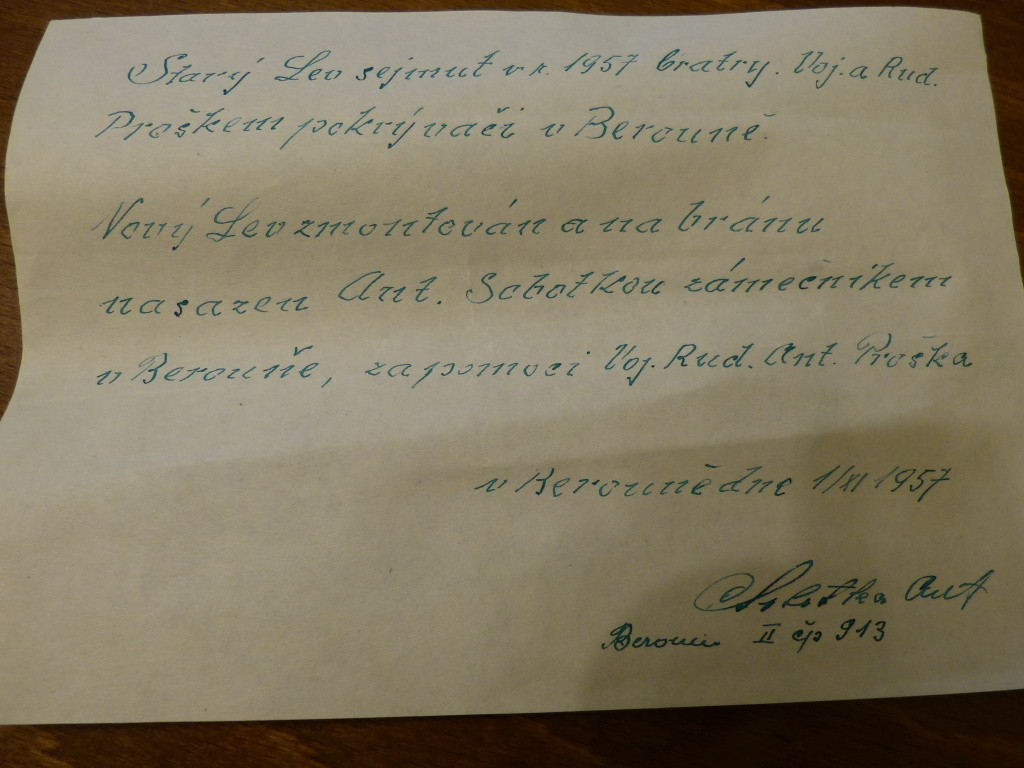 Starý Lev sejmut v r. 1957 bratry. Voj. a Rud.
Proškem pokrývači v Berouně.
Nový Lev zmontován a na bránu
nasazen Ant. Sobotkou zámečníkem
v Berouňe, zapomoci Voj. Rud. Ant. Proška
v Berouně dne 1/XI 1957
Sobotka Ant
Beroun II čp 913